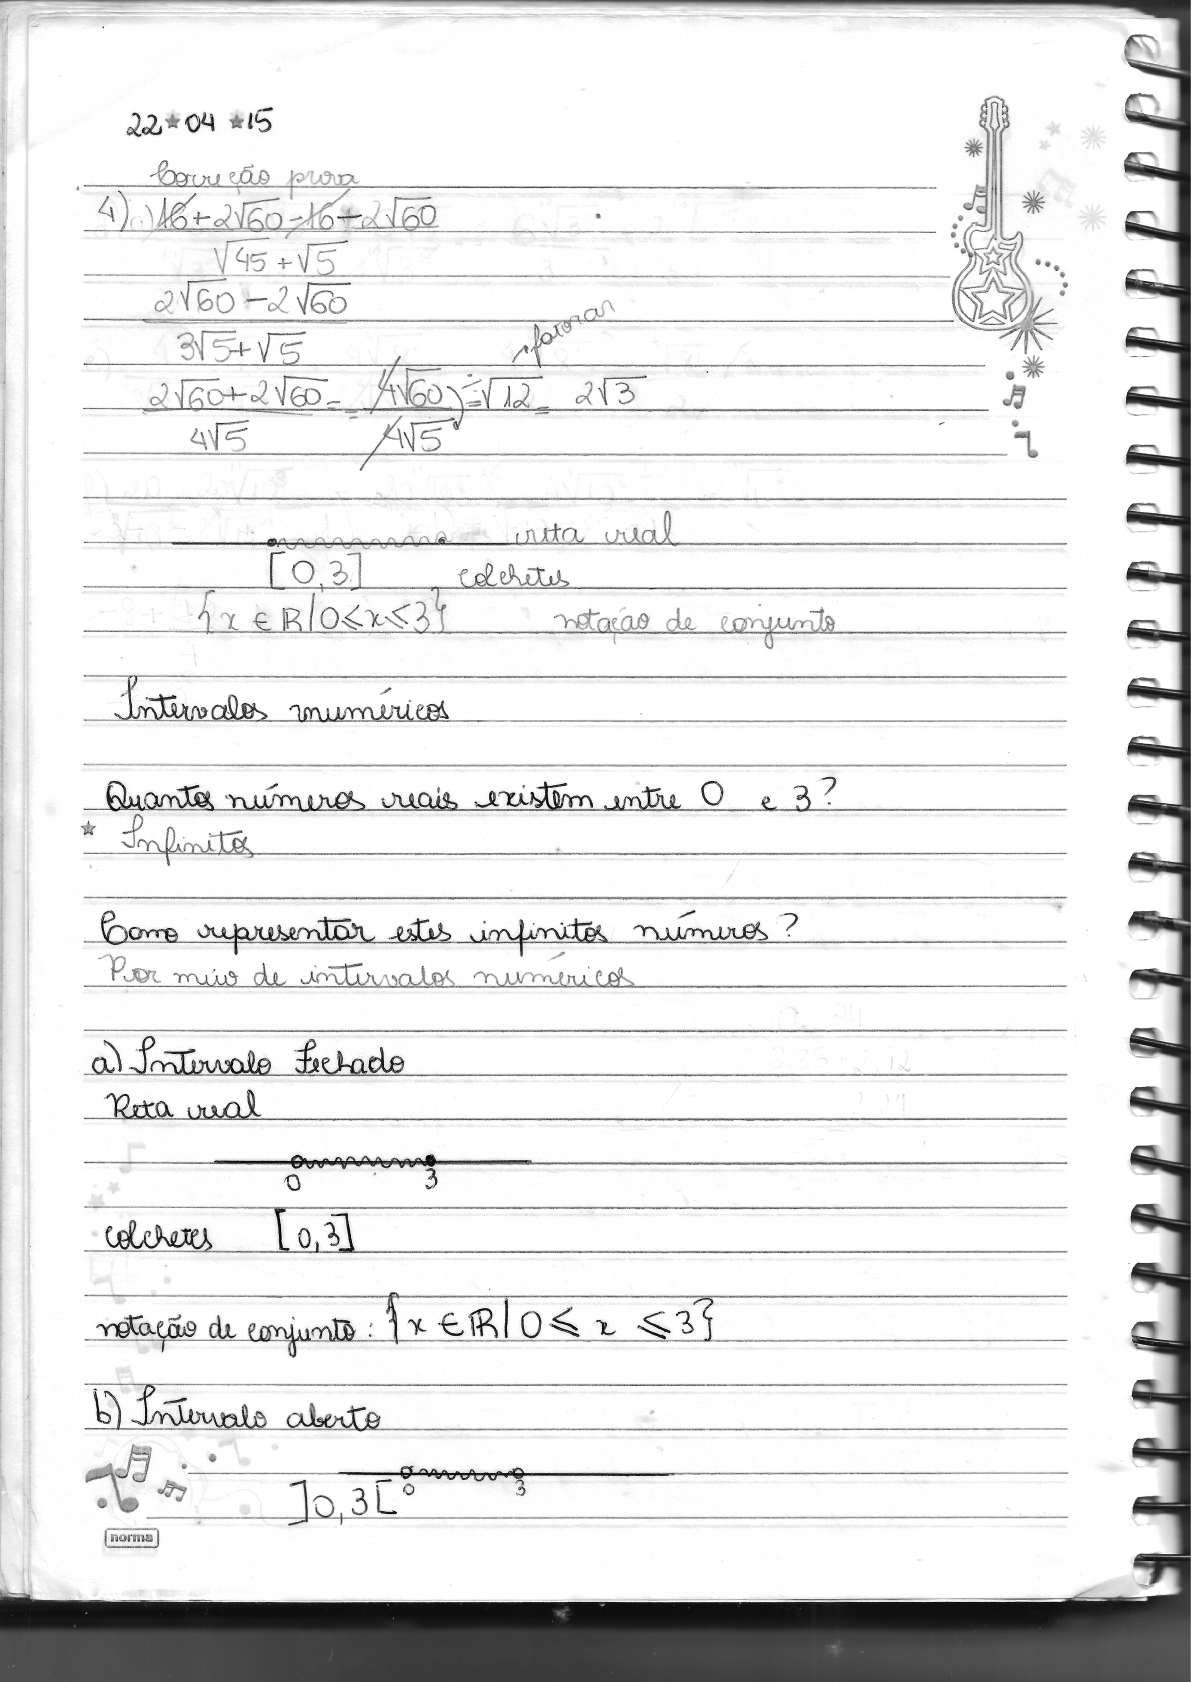 22★04★15
Correção prova
4) a) 16+2√60-16+2√60
√45+√5
2√60-2√60
3√5+√5
2√60+2√60 = 4√60 = √12 = 2√3 → fatorar
4√5 4√5
reta real
[0,3] colchetes
{x ∈ R|0≤x≤3} notação de conjunto
Intervalos numéricos
Quantos números reais existem entre 0 e 3?
★ Infinitos
Como representar estes infinitos números?
Por meio de intervalos numéricos
a) Intervalo Fechado
Reta real
0 3
colchetes [0,3]
notação de conjunto: {x ∈ R| 0 ≤ x ≤ 3}
b) Intervalo aberto
]0,3[ 0 3
norma